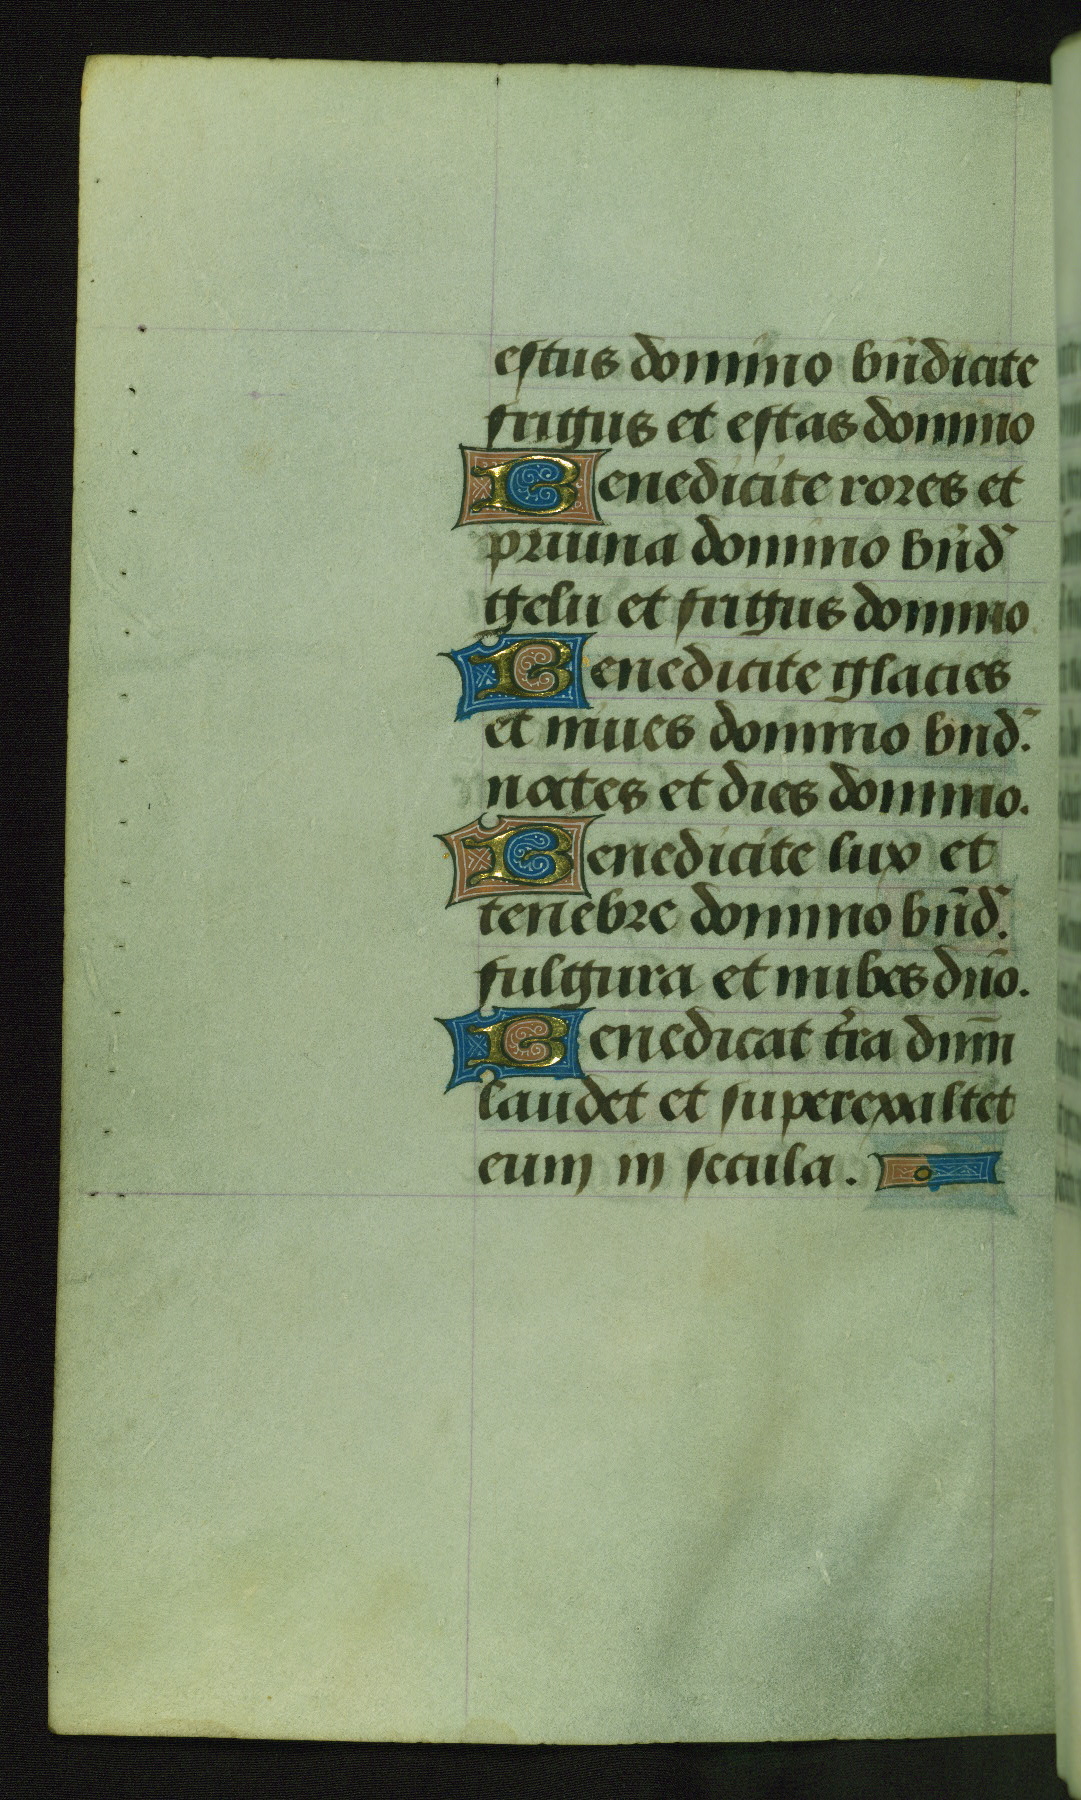 estus domino bn̄dicite
frigus et estas domino
Benedicite rores et
pruina domino bn̄d̄
gelu et frigus domino
Benedicite glacies
et niues domino bnd̄.
noctes et dies domino.
Benedicite lux et
tenebre domino bn̄d̄.
fulgura et nubes dn̄o.
Benedicat t̄ra dnm̄
laudet et superexaltet
eum in secula.